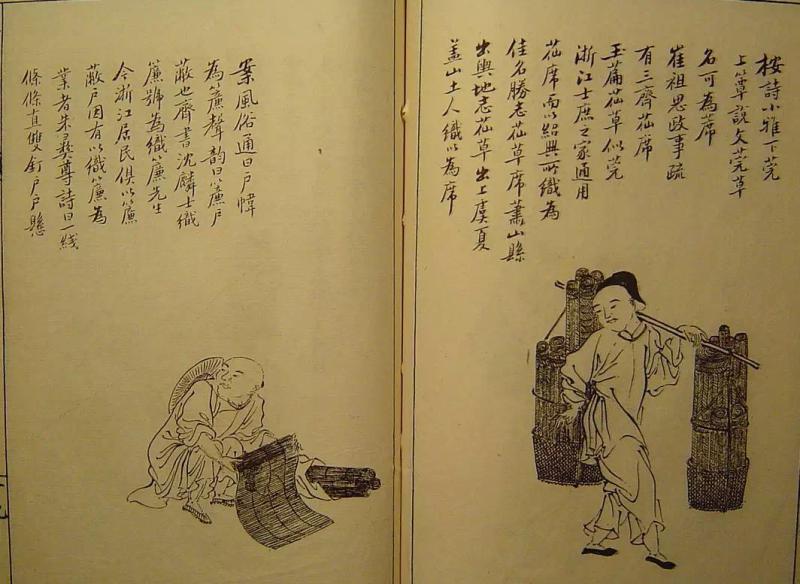 按詩小雅下莞
上簟說文莞草
名可為席
崔祖思政事疏
有三齊苮席
玉篇苮草似莞
浙江士庶之家通用
苮席而以紹興所織為
佳名勝志苮草席蕭山縣
出輿地志苮草出上虞夏
盖山土人織以為席
案風俗通曰戶幃
為簾聲韵曰簾戶
蔽也齊書沈麟士織
簾號為織簾先生
今浙江居民俱以簾
蔽戶因有以織簾為
業者朱彛尊詩曰一线
條條直雙釘戶戶懸